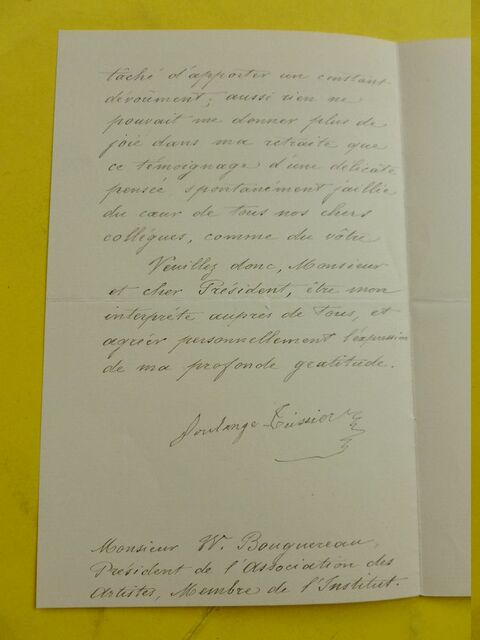 tâché d'apporter un constant
dévoûment; aussi rien ne
pouvait me donner plus de
joie dans ma retraite que
ce témoignage d'une délicate
pensée spontanément jaillie
du cœur de tous nos chers
collègues, comme du vôtre
Veuillez donc, Monsieur
et cher Président, être mon
interprète auprès de tous, et
agréer personnellement l'expression
de ma profonde gratitude.
Soulange-Teissier
Monsieur W. Bouguereau,
Président de l'Association des
Artistes, Membre de l'Institut.